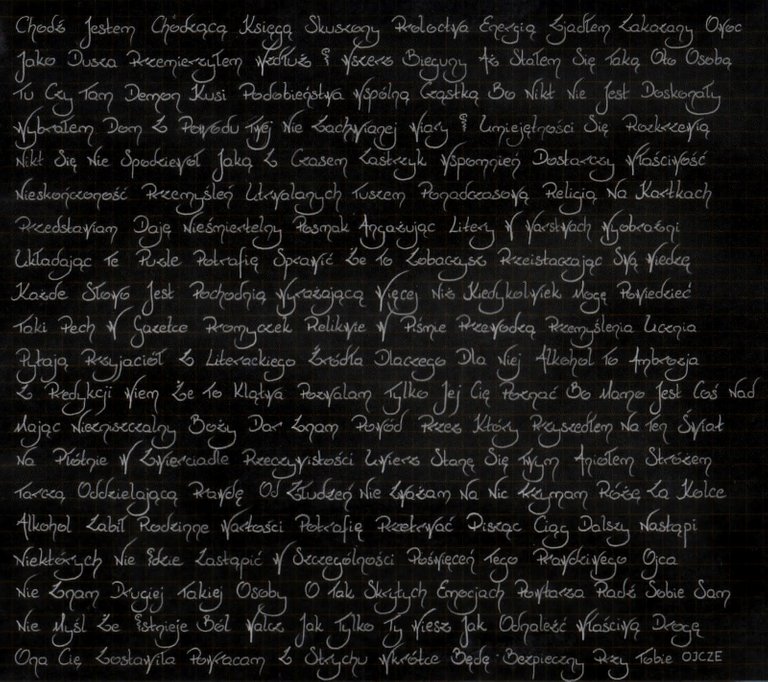 Chodź Jestem Chodzącą Księgą Skuszony Proloctwa Energią Zjadłem Zakazany Owoc
Jako Dusza Przemierzyłem Wzdłuż I Wszerz Bieguny Aż Stałem Się Taką Oto Osobą
Tu Czy Tam Demon Kusi Podobieństwa Wspólną Cząstką Bo Nikt Nie Jest Doskonały
Wybrałem Dom Z Powodu Twej Nie Zachwianej Wiary I Umiejętności Się Rozkrzewią
Nikt Się Nie Spodziewał Jaką Z Czasem Zastrzyk Wspomnień Dostarczy Właściwość
Nieskończoność Przemyśleń Utrwalanych Tuszem Ponadczasową Religią Na Kartkach
Przedstawiam Daję Nieśmiertelny Posmak Angażując Litery W Warstwach Wyobraźni
Układając Te Puzle Potrafię Sprawić Że To Zobaczysz Przeistaczając Swą Wiedzę
Każde Słowo Jest Pochodnią Wyrażającą Więcej Niż Kiedykolwiek Mogę Powiedzieć
Taki Pech W Gazetce Promyczek Relikwie W Piśmie Przewodzą Przemyślenia Ucznia
Pytają Przyjaciół Z Literackiego Źródła Dlaczego Dla Niej Alkohol To Ambrozja
Z Predykcji Wiem Że To Klątwa Pozwalam Tylko Jej Cię Poznać Bo Mamo Jest Coś Nad
Mając Niezniszczalny Boży Dar Znam Powód Przez Który Przyszedłem Na Ten Świat
Na Płótnie W Zwierciadle Rzeczywistości Uwierz Stanę Się Twym Aniołem Stróżem
Tarczą Oddzielającą Prawdę Od Złudzeń Nie Zważam Na Nic Trzymam Różę Za Kolce
Alkohol Zabił Rodzinne Wartości Potrafię Przetrwać Pisząc Ciąg Dalszy Nastąpi
Niektórych Nie Idzie Zastąpić W Szczególności Poświęceń Tego Prawdziwego Ojca
Nie Znam Drugiej Takiej Osoby O Tak Skrytych Emocjach Powtarza Radź Sobie Sam
Nie Myśl Że Istnieje Ból Walcz Jak Tylko Ty Wiesz Jak Odnaleźć Właściwą Drogę
Ona Cię Zostawiła Powracam Z Strychu Wkrótce Będę Bezpieczny Przy Tobie OJCZE